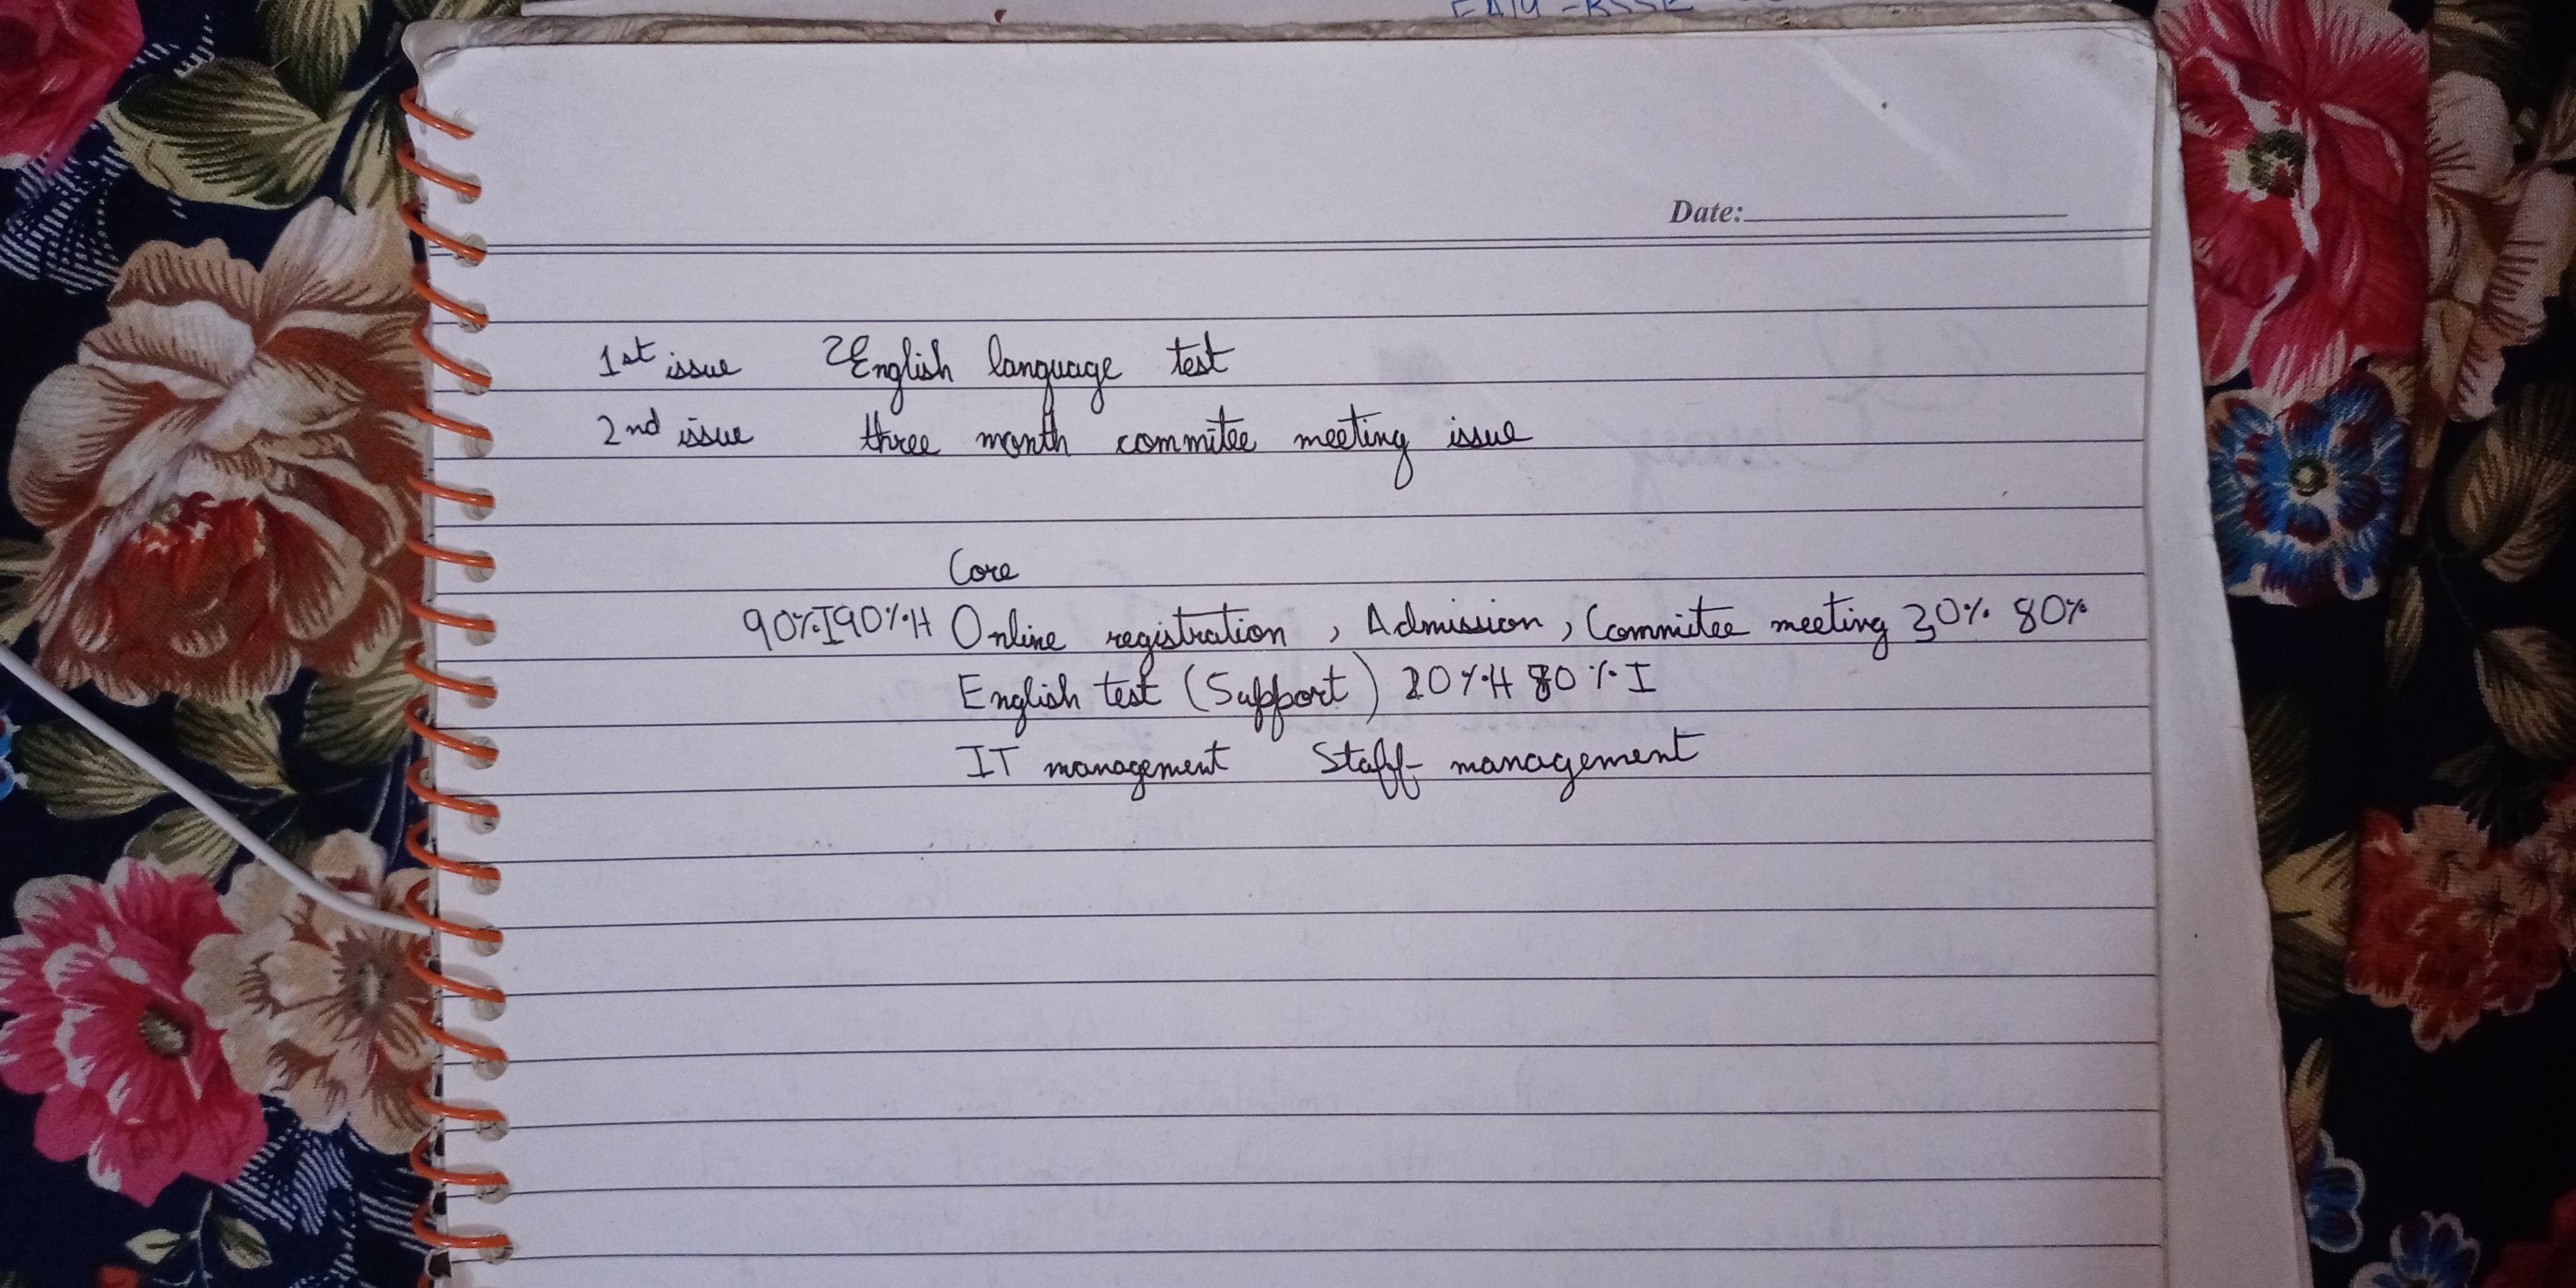 Date:
1st issue English language test
2nd issue three month commitee meeting issue
Core
90%I90%H Online registration , Admission , Commitee meeting 30% 80%
English test (Support) 20%H 80%I
IT management Staff management